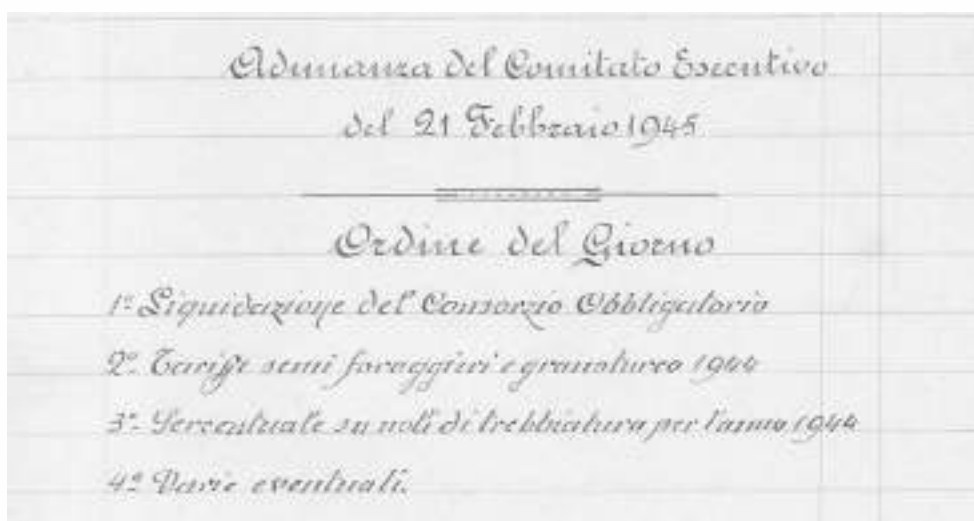 Adunanza del Comitato Esecutivo
del 21 Febbraio 1945
Ordine del Giorno
1º Liquidazione del Consorzio Obbligatorio
2º Tariffe semi foraggieri e granoturco 1944
3º Percentuale su noli di trebbiatura per l'anno 1944
4º Varie eventuali.